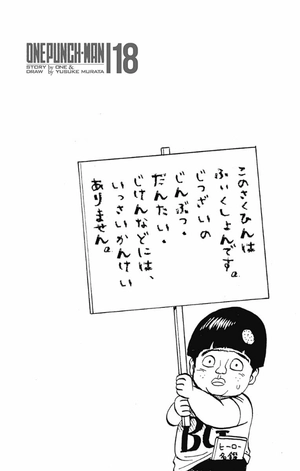 ONEPUNCH-MAN 18
STORY by ONE &
DRAW by YUSUKE MURATA
このさくひんは
ふぃくしょんです。
じつざいの
じんぶつ・
だんたい・
じけんなどには、
いっさいかんけい
ありません。
ヒーロー
名鑑